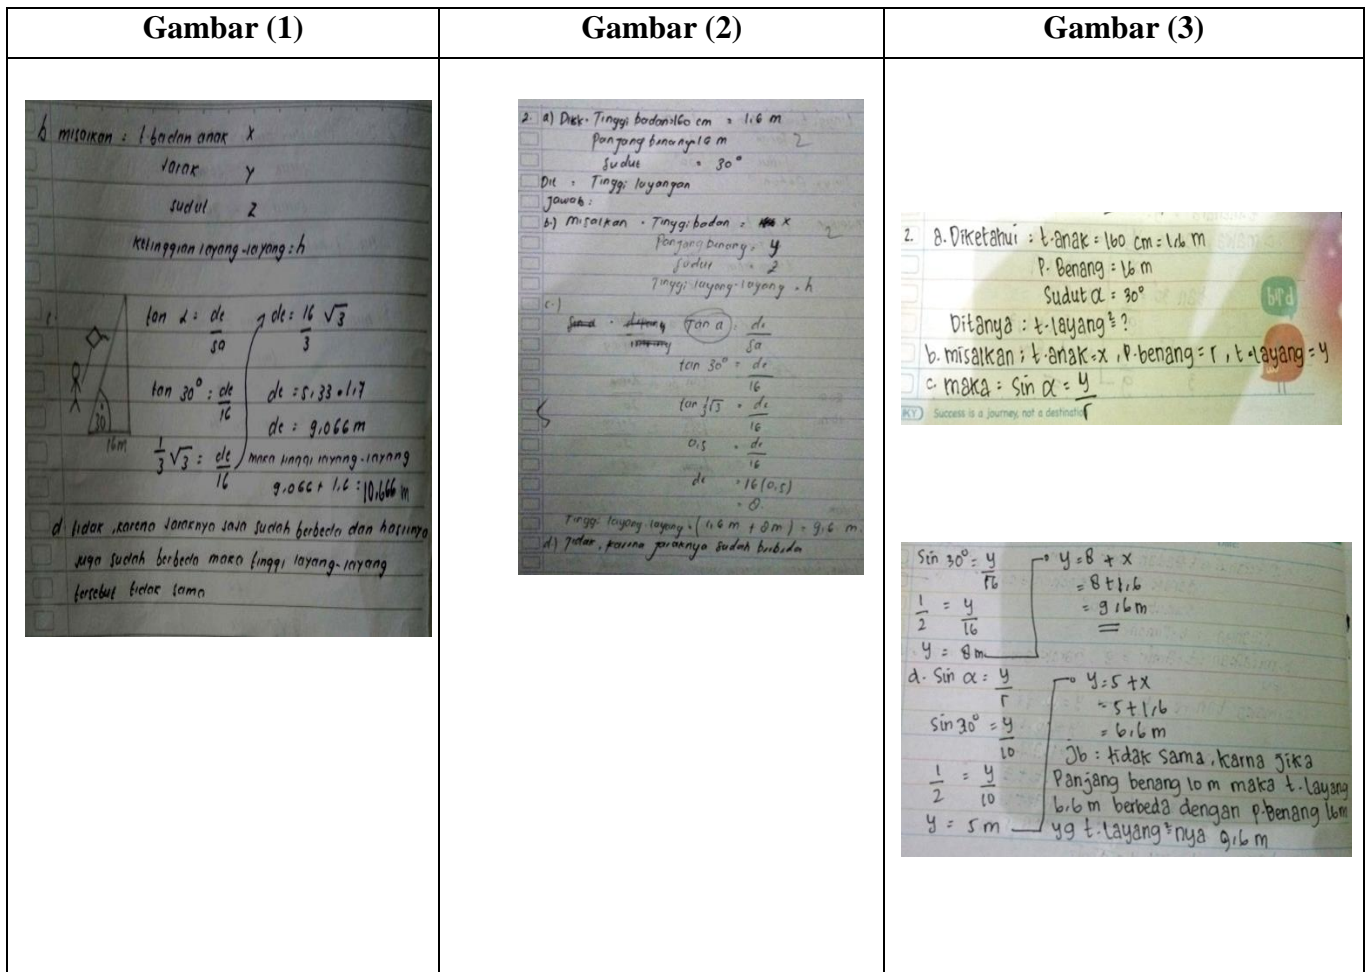 Gambar (1)
Gambar (2)
Gambar (3)
b misalkan : t. badan anak X
Jarak Y
sudut Z
ketinggian layang-layang : h
c.
30°
16m
tan α = de
sa
tan 30° : de
16
1/3 √3 = de
16
de : 16 √3
3
de = 5,33 . 1,7
de : 9,066 m
maka tinggi layang-layang
9,066 + 1,6 : 10,666 m
d tidak, karena Jaraknya saja sudah berbeda dan hasilnya
juga sudah berbeda maka tinggi layang-layang
tersebut tidak sama
2. a) Dik . Tinggi badan 160 cm = 1,6 m
Panjang benang 16 m 2
Sudut = 30°
Dit : Tinggi layangan
Jawab :
b.) Misalkan . Tinggi badan = x
Panjang benang = y 2
Sudut = z
Tinggi layang-layang = h
c.)
Tan a = de
sa
tan 30° = de
16
tan 1/3 √3 = de
16
0,5 = de
16
de = 16 (0,5)
= 8
Tinggi layang-layang = (1,6 m + 8 m) = 9,6 m.
d.) Tidak, karena jaraknya sudah berbeda
2. a. Diketahui : t.anak = 160 cm = 1,6 m
P. Benang = 16 m
Sudut α = 30°
Ditanya : t.layang² ?
b. misalkan ; t.anak = x , P.benang = r , t.layang = y
c. maka = Sin α = y
r
Success is a journey, not a destination
Sin 30° = y
16
1/2 = y
16
y = 8 m
y = 8 + x
= 8 + 1,6
= 9,6 m
d. Sin α = y
r
Sin 30° = y
10
1/2 = y
10
y = 5 m
y = 5 + x
= 5 + 1,6
= 6,6 m
Jb : tidak sama, karna jika
Panjang benang 10 m maka t.layang
6,6 m berbeda dengan p.benang 16m
yg t.layang²nya 9,6 m